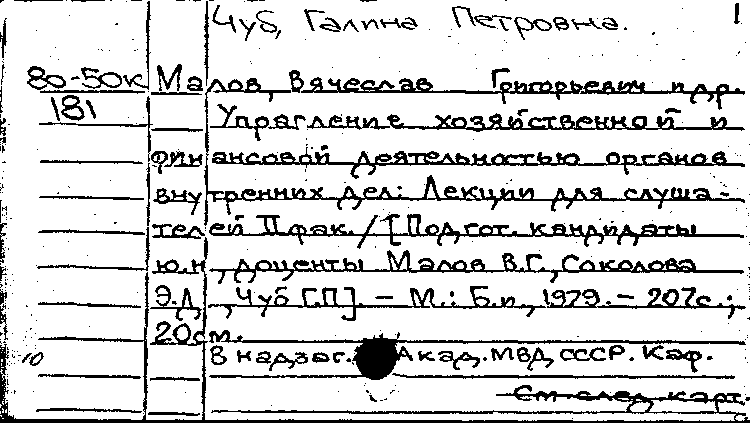 Чуб, Галина Петровна. 1
80-50к Малов, Вячеслав Григорьевич и др.
181 Управление хозяйственной и
финансовой деятельностью органов
внутренних дел: Лекции для слуша-
телей II фак. / [Подгот. кандидаты
ю.н., доценты Малов В.Г., Соколова
Э.Д., Чуб Г.П]. - М.: Б.и., 1979. - 207с.;
20см.
10 В надзаг.: Акад. МВД СССР. Каф.
См след. карт.